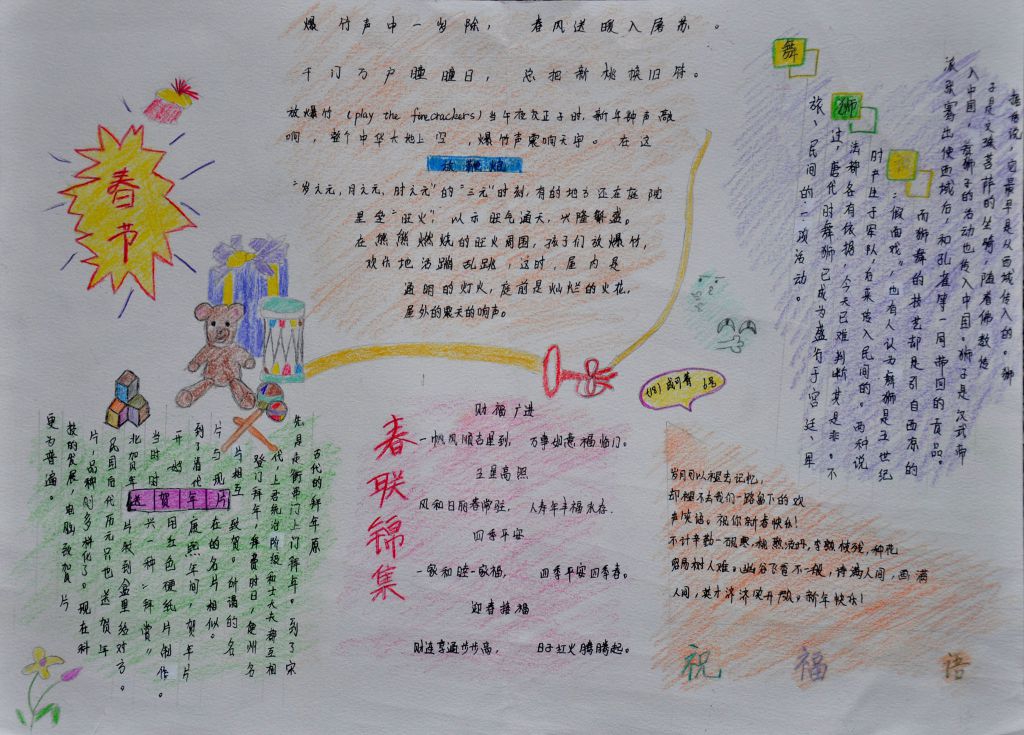 爆竹声中一岁除，春风送暖入屠苏。
千门万户瞳瞳日，总把新桃换旧符。
放爆竹（play the firecrackers）当午夜交正子时，新年钟声敲
响，整个中华大地上空，爆竹声震响天宇。在这
放鞭炮
"岁之元，月之元，时之元"的"三元"时刻，有的地方还在庭院
里垒"旺火"以示旺气通天，兴隆繁盛。
在熊熊燃烧的旺火周围，孩子们放爆竹，
欢乐地活蹦乱跳，这时，屋内是
通明的灯火，庭前是灿烂的火花，
屋外的震天的响声。
春节
舞
狮
据传说，它最早是从西域传入的。狮
子是文殊菩萨的坐骑，随着佛教传
入中国，舞狮子的活动也传入中国。狮子是汉武帝
派张骞出使西域后，和孔雀等一同带回的贡品。
而狮舞的技艺却是引自西凉的
"假面戏"，也有人认为舞狮是五世纪
时产生于军队，后来传入民间的。两种说
法都各有依据，今天已难判断其是非。不
过，唐代时舞狮已成为盛行于宫廷、军
旅、民间的一项活动。
春联锦集
财福广进
一帆风顺吉星到，万事如意福临门。
五星高照
风和日丽春常驻，人寿年丰福永存。
四季平安
一家和睦一家福，四季平安四季春。
迎春接福
财连亨通步步高，日子红火腾腾起。
送贺年片
古代的拜年原
先是走街串门上门拜年。到了宋
代，上层统治阶级和士大夫都互相
登门拜年，耗费时日，便用名
片相互致贺。所谓的名
片与现在的名片相似。
到了清代康熙年间，贺年片
开始用红色硬纸片制作。
当时时兴一种"拜赏"
北贺年片装到盒里给对方。
民国后代历元旦也送贺年
片，品种则多样化了。现在科
技的发展，电脑致贺片
更为普遍。
岁月可以褪去记忆，
却褪不去我们一路留下的欢
声笑语。祝你新春快乐！
人间，英才济济笑开颜。新年快乐！
祝福语